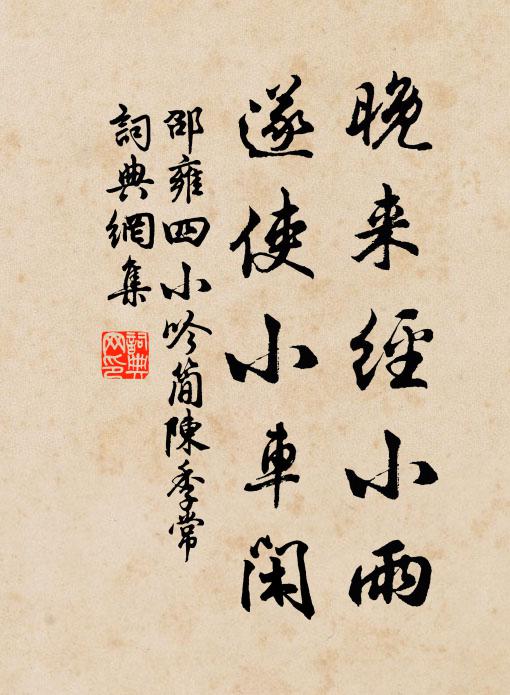 晚来經小雨
遂使小車閑
邵雍四小吟簡陳季常
詞典網集
詞典
网印